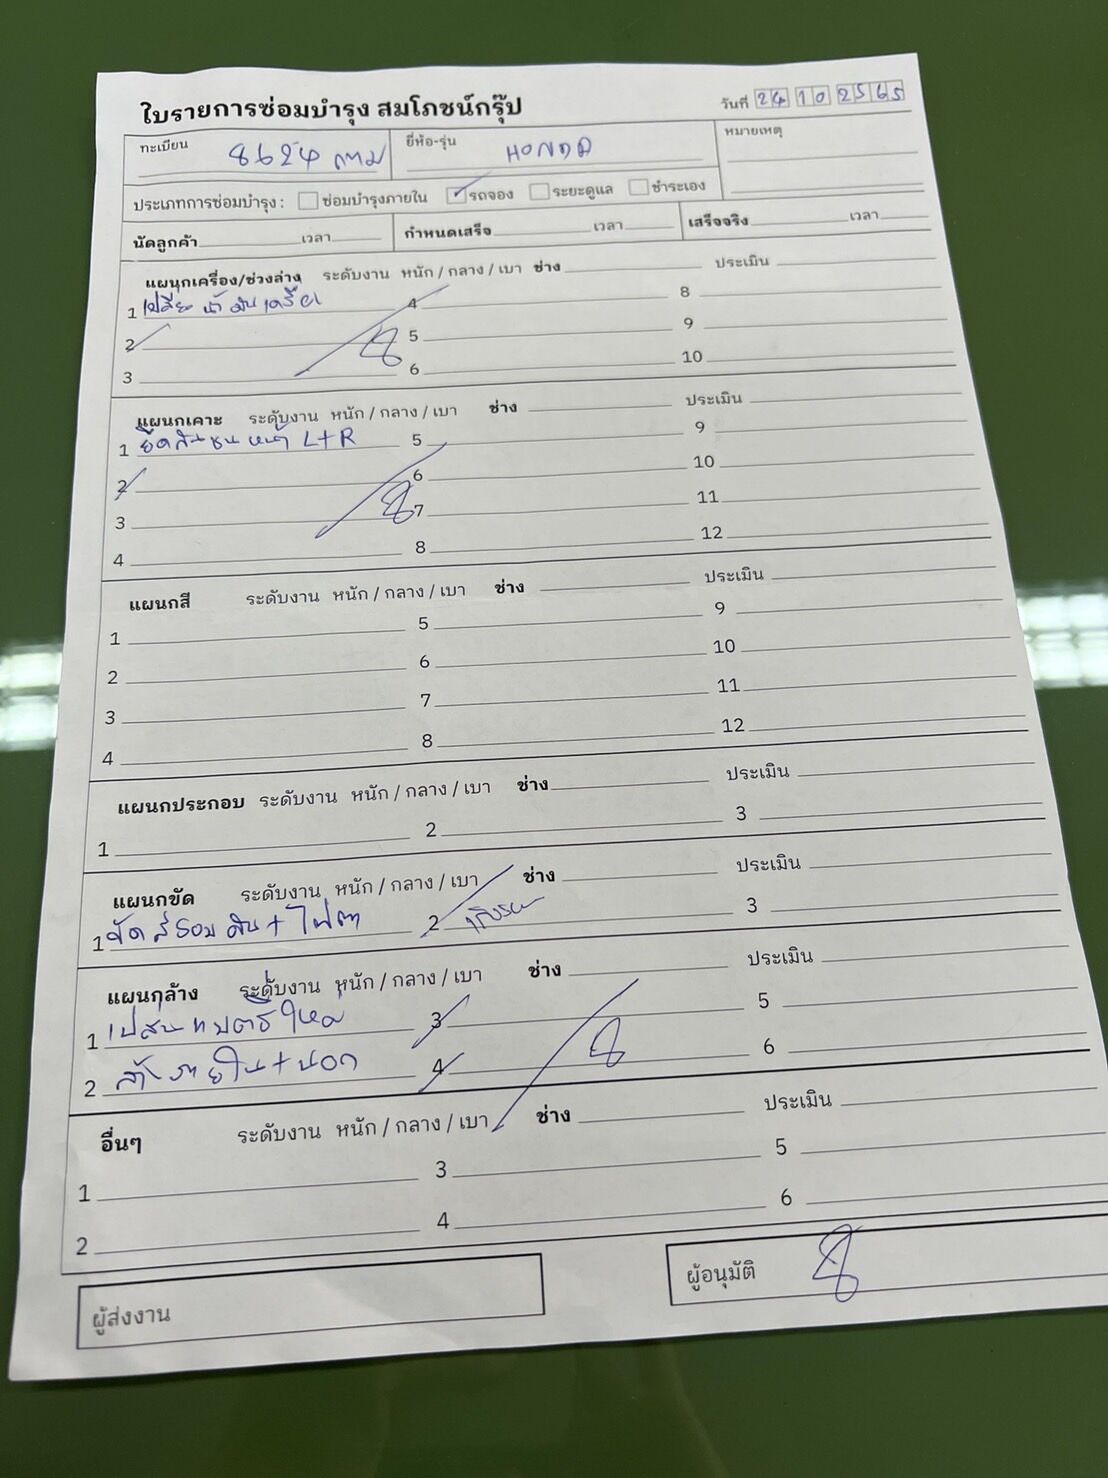 ใบรายการซ่อมบำรุง สมโภชน์กรุ๊ป
วันที่ 24 10 2565
ทะเบียน 8624 กทม
ยี่ห้อ-รุ่น HONDA
หมายเหตุ
ประเภทการซ่อมบำรุง : ซ่อมบำรุงภายใน รถจอง ระยะดูแล ชำระเอง
นัดลูกค้า เวลา กำหนดเสร็จ เวลา เสร็จจริง เวลา
แผนกเครื่อง/ช่วงล่าง ระดับงาน หนัก / กลาง / เบา ช่าง ประเมิน
1 4 8
2 5 9
3 6 10
แผนกเคาะ ระดับงาน หนัก / กลาง / เบา ช่าง ประเมิน
1 ยึดกันชนหน้า L+R 5 9
2 6 10
3 7 11
4 8 12
แผนกสี ระดับงาน หนัก / กลาง / เบา ช่าง ประเมิน
1 5 9
2 6 10
3 7 11
4 8 12
แผนกประกอบ ระดับงาน หนัก / กลาง / เบา ช่าง ประเมิน
1 2 3
แผนกขัด ระดับงาน หนัก / กลาง / เบา ช่าง ประเมิน
1 ขัดสีรอบคัน + ไฟตา 2 3
แผนกล้าง ระดับงาน หนัก / กลาง / เบา ช่าง ประเมิน
1 3 5
2 ล้างภายใน + นอก 4 6
อื่นๆ ระดับงาน หนัก / กลาง / เบา ช่าง ประเมิน
1 3 5
2 4 6
ผู้ส่งงาน
ผู้อนุมัติ